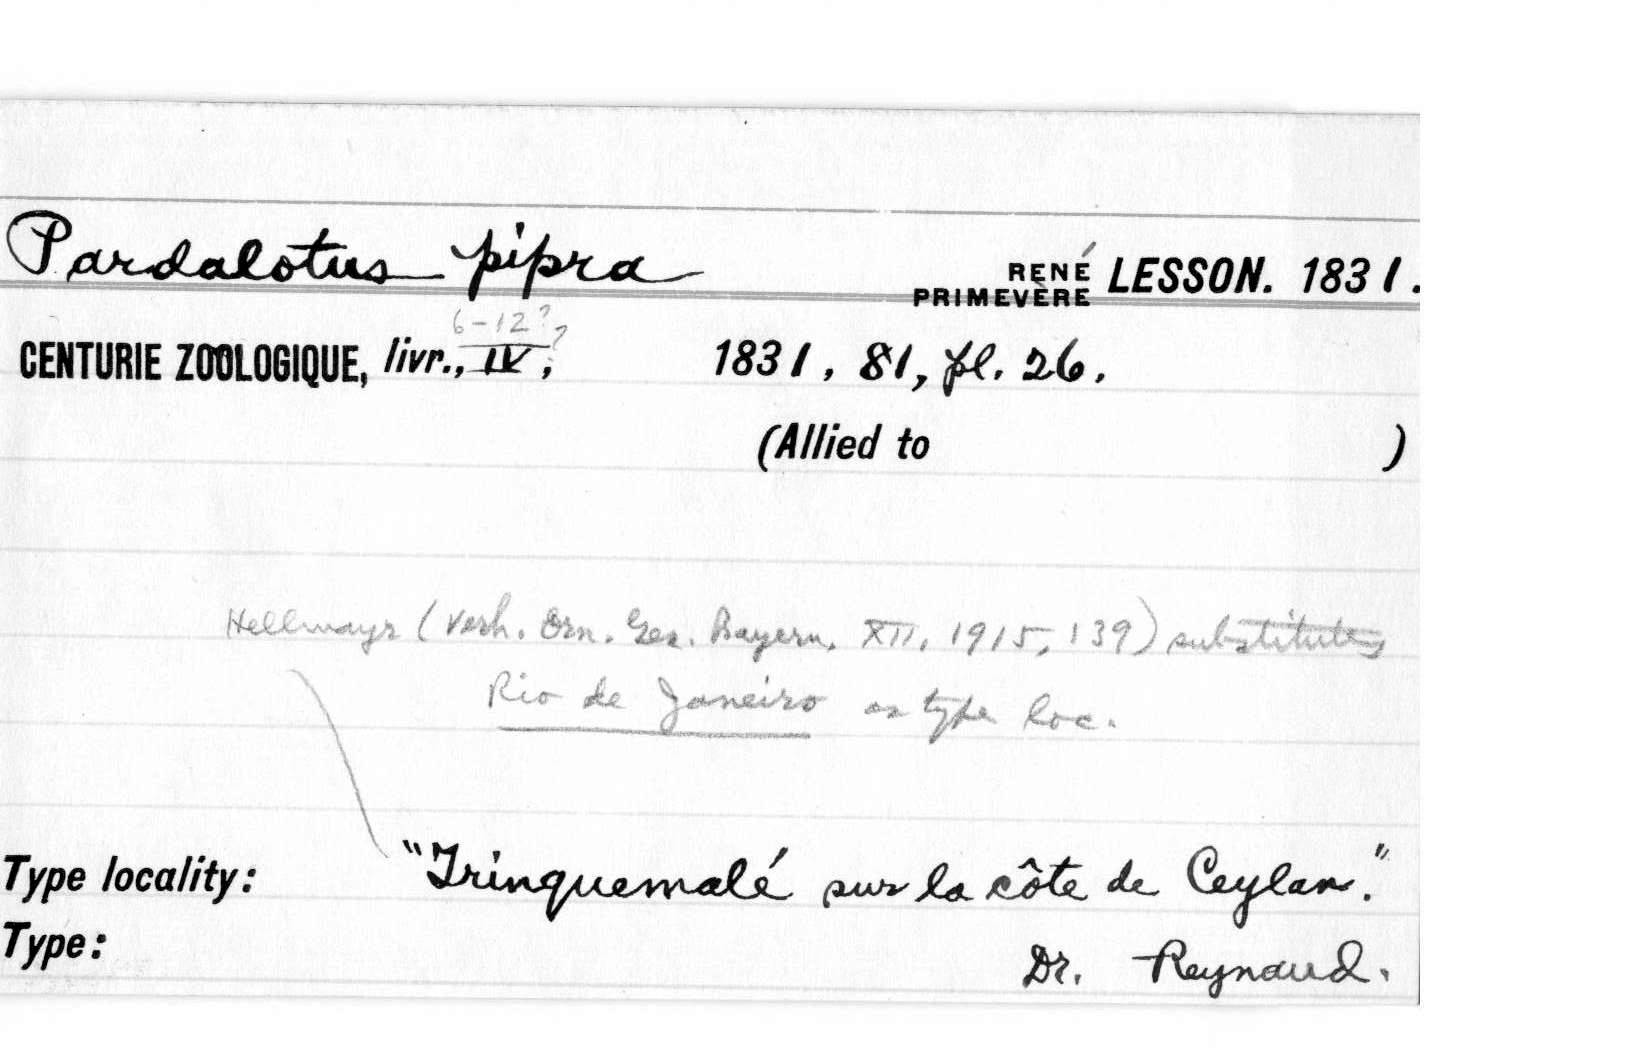 Pardalotus pipra RENÉ PRIMEVÈRE LESSON. 1831.
6-12??
CENTURIE ZOOLOGIQUE, livr., IV, 1831, 81, pl. 26.
(Allied to )
Hellmayr (Verh. Orn. Ges. Bayern, XII, 1915, 139) substitutes
Rio de Janeiro as type loc.
Type locality: "Trinquemalé sur la côte de Ceylan."
Type: Dr. Reynaud.